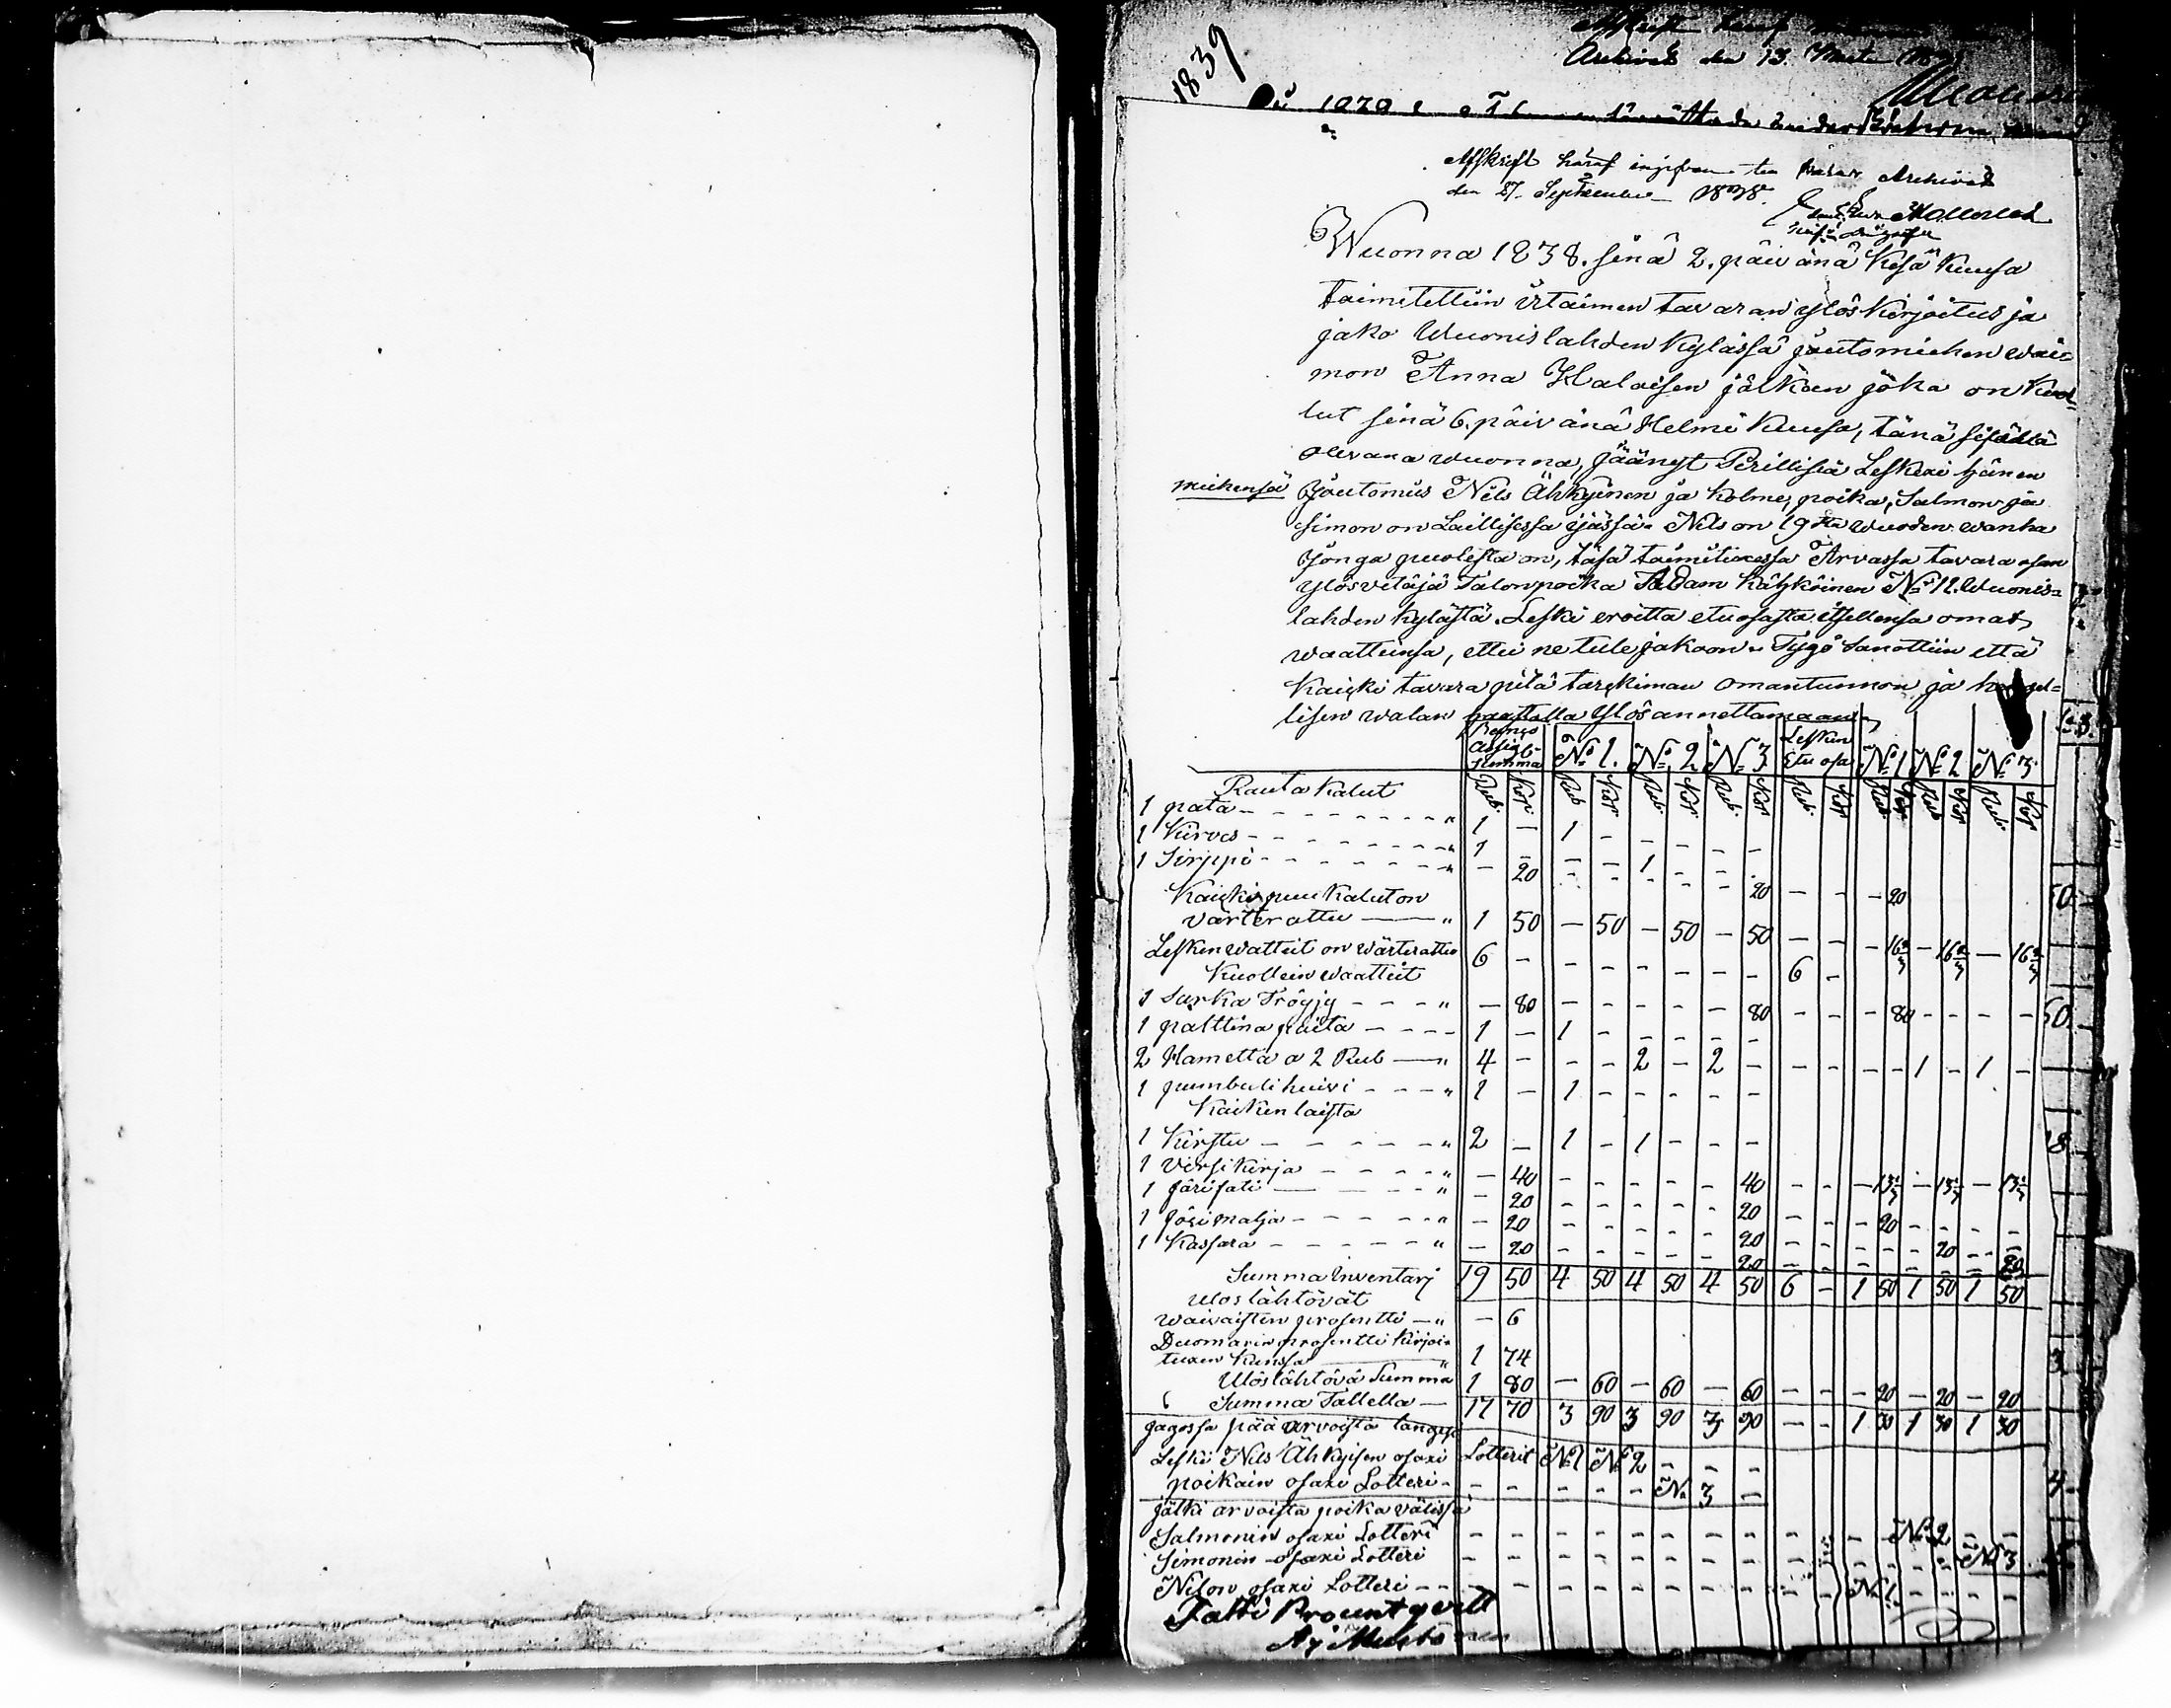 1839
Archivet den 13
Afskrift häraf ingifven Archivet
den 27 September 1838
Wuonna 1838. sinä 2. päivänä Kesä Kuusa
toimitettiin irtaimen tavaran ylöskirjoitus ja
jako Wuonislahden Kylässä joutomiehen wai-
mon Anna Halaisen jälkeen joka on kuol-
lut sinä 6. päivänä Helmi Kuusa, tänä sisällä
olevana wuonna, Jäänyt Perillisiä Leskexi hänen
miehensä Joutomies Nils Ähkyinen ja kolme poika, Salmon ja
Simon on Laillisessa ijässä. Nils on 19 wuoden wanha
Jonga puolesta on, täsä toimituxessa Arvassa tavara osan
ylösvetäjä Talonpoika Adam Kähköinen No 12. Wuonis-
lahden kylästä. Leski eroitta etuosasta itsellensä omat
waatteinsa, ettei ne tule jakoon. Sijgö sanottiin että
Kaicki tavara pitä tarckiman omantunnon ja
lisen walan haastolla ylös annettamaan
Summa No 1. No 2 No 3 Lesken Etu osa No 1 No 2 No 3
Rauta Kalut Rub. Kop. Rub Kop Rub Kop Rub Kop Rub. Kop Rub Kop Rub Kop Rub. Kop
1 pata - - " 1 - 1 - - - - -
1 Kirves - - " 1 - - - 1 - - -
1 Sirppi - - " - 20 - - - - - 20 - - - 20
Kaicki puu Kalut on
värterattu — " 1 50 - 50 - 50 - 50 - - - 16 2/3 - 16 2/3 - 16 2/3
Lesken watteit on wärterattu 6 - - - - - - - 6 -
Kuollein waatteit
1 Sarka Tröyjy - - " - 80 - - - - - 80 - - - 80 - - - -
1 palttina paita - - 1 - 1 - - - - -
2 Hametta a 2 Rub — " 4 - - - 2 - 2 - - - - - 1 - 1 -
1 pumbuli huivi - - " 1 - 1 - - - - -
Kaiken laista
1 Kirstu - - " 2 - 1 - 1 - - -
1 Virsi Kirja - - " - 40 - - - - - 40 - - - 13 1/3 - 13 1/3 - 13 1/3
1 Järi sati — " - 20 - - - - - 20 - - - 20 - - - -
1 Jösi malja - - " - 20 - - - - - 20 - - - - - 20 - -
1 Kassara - - " - 20 - - - - - 20 - - - - - - - 20
Summa Inventarj 19 50 4 50 4 50 4 50 6 - 1 50 1 50 1 50
Ulos lähtövät
waivaisten prosentti — " - 6
Duomarin prosentti kirjoi-
tuxen Kanssa — " 1 74
Ulos lähtövä Summa 1 80 - 60 - 60 - 60 - - - 20 - 20 - 20
Summa Tallella — 17 70 3 90 3 90 3 90 - - 1 30 1 30 1 30
Jagossa pää arvoista langesi
Leski Nils Ähkyisen osaxi Lotterit No 1 No 2 - - -
poikain osaxi Lotteri - - - - - - No 3 -
jälki arvoista poika välissä
Salmonin osaxi Lotteri - - - - - - - - - - - No 2 - -
Simonin osaxi Lotteri - - - - - - - - - - - - - No 3
Nilsin osaxi Lotteri - - - - - - - - - - - No 1. - - -